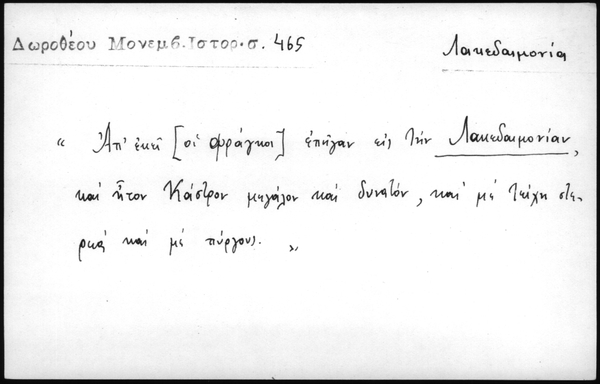 Δωροθέου Μονεμβ. Ιστορ. σ. 465
Λακεδαιμονία
« Ἀπ' ἐκεῖ [οἱ φράγκοι] ἐπῆγαν εἰς τὴν Λακεδαιμονίαν,
καὶ ἦτον Κάστρον μεγάλον καὶ δυνατόν, καὶ μὲ τείχη στε-
ρεὰ καὶ μὲ πύργους. »